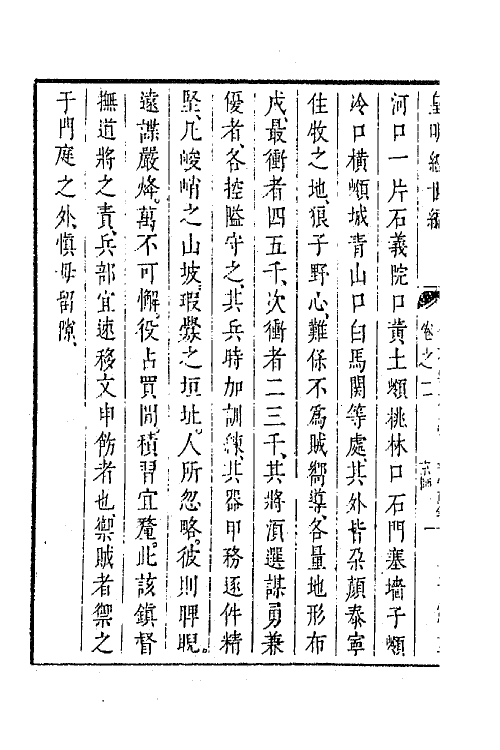 皇明經世編
卷之二
京師
河口一片石義院口黄土嶺桃林口石門塞墻子嶺
冷口橫嶺城青山口白馬関等處其外皆朶顔泰寧
住牧之地、狼子野心、難保不爲賊嚮導、各量地形布
戍、最衝者四五千、次衝者二三千、其將須選謀勇兼
優者、各控隘守之、其兵時加訓練、其器甲務逐件精
堅、凡峻峭之山坡、瑕釁之垣址、人所忽略。彼則睥睨。
遠諜嚴烽、萬不可懈。役占買閒、積習宜釐。此該鎮督
撫道將之責、兵部宜速移文申飭者也、禦賊者禦之
于門庭之外、愼毋留隙、